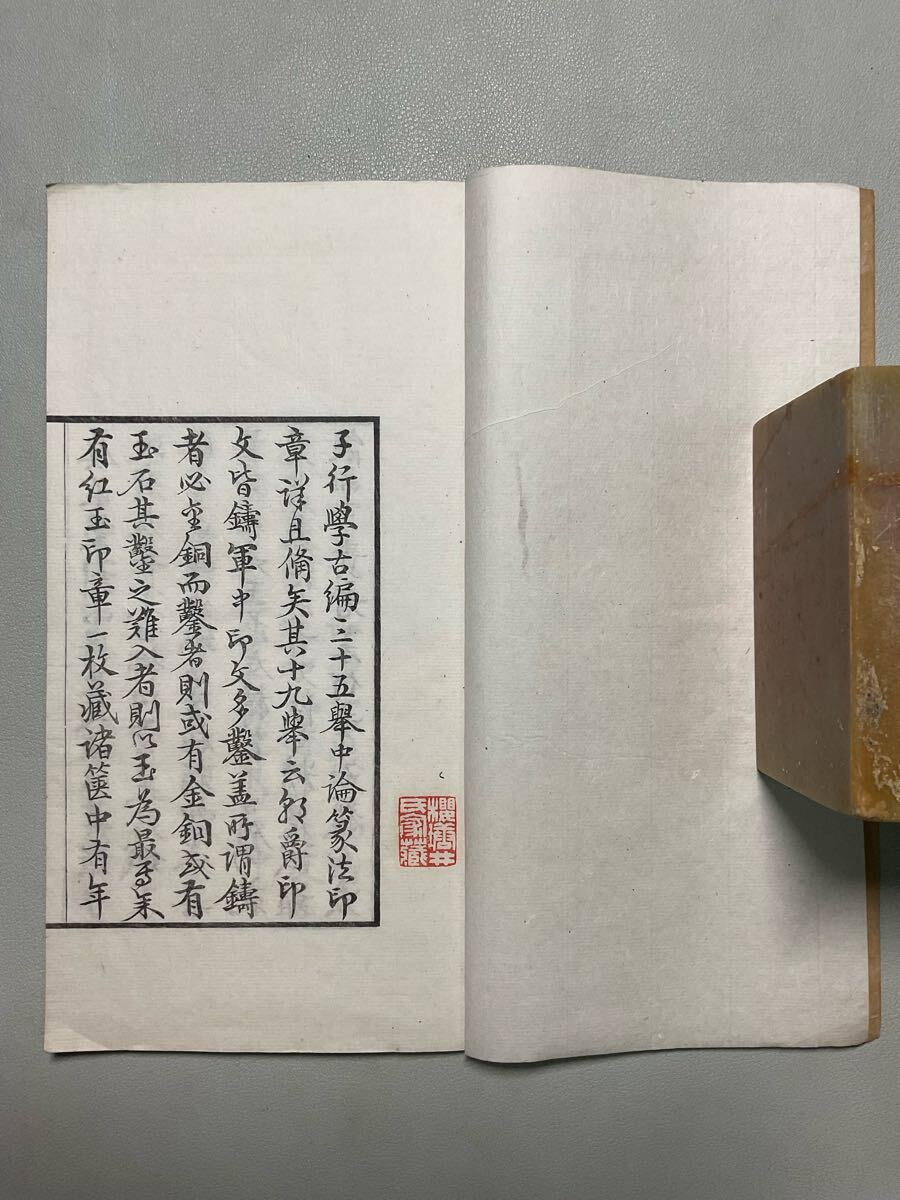 子行學古編三十五舉中論篆法印
章詳且備矣其十九舉云朝爵印
文皆鑄軍中印文多鑿蓋所謂鑄
者必金銅而鑿者則或有金銅或有
玉石其鑿之難入者則以玉為最焉余
有紅玉印章一枚藏诸篋中有年
櫻井
氏家藏